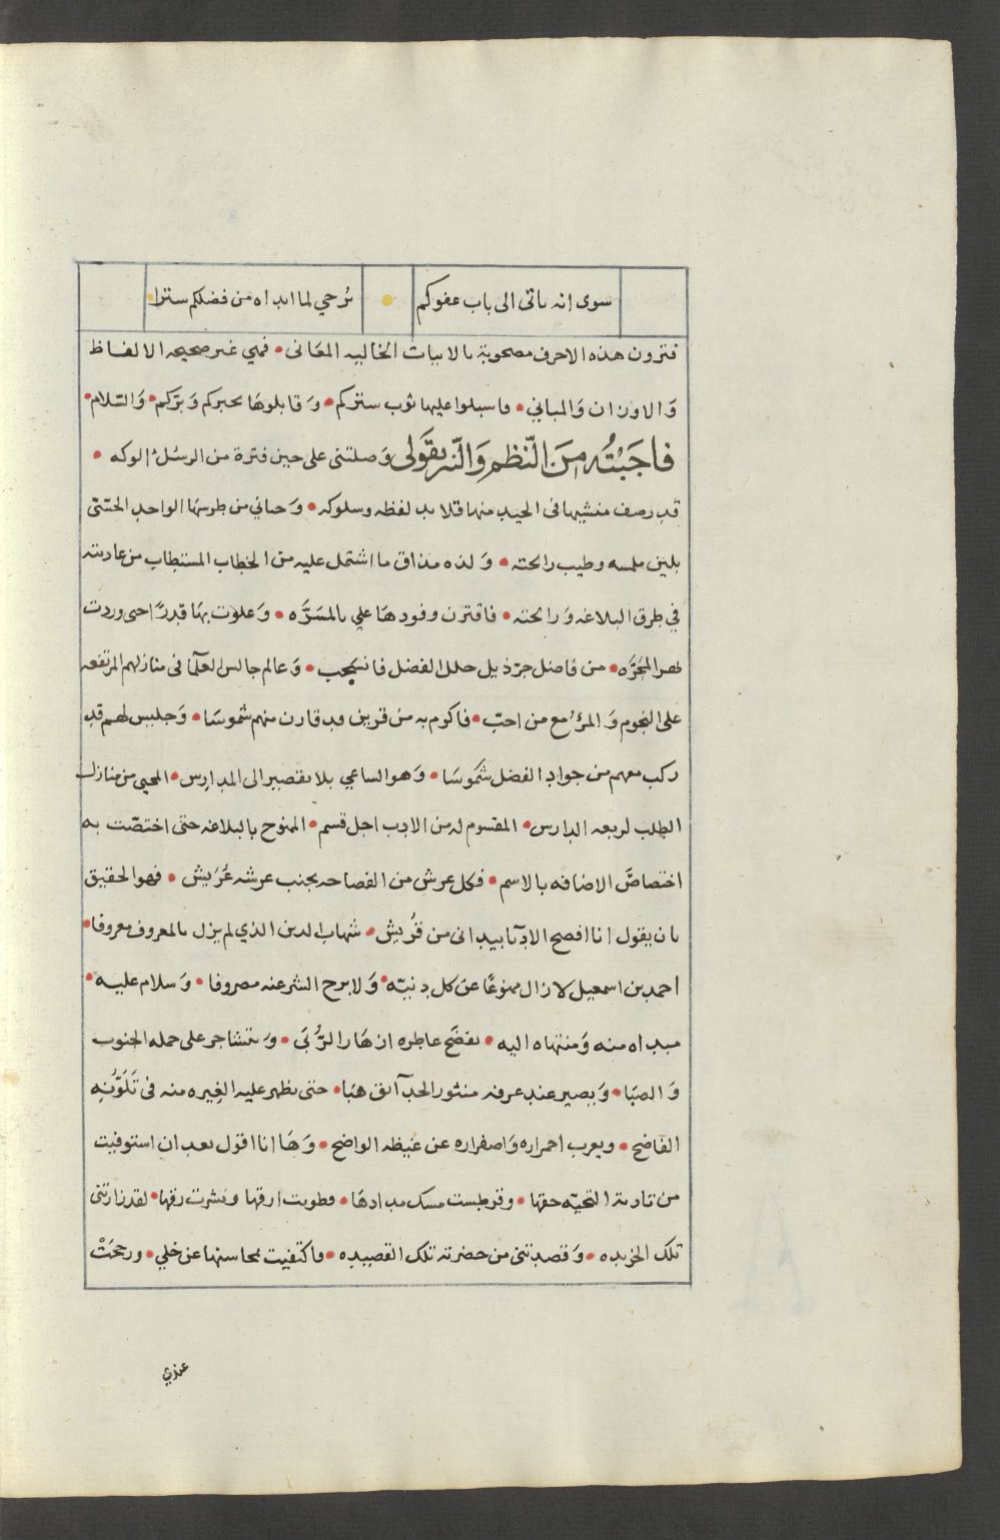 سوى انه ياتى الى باب عفوكم • يُرجي لما ابداه من فضلكم سترا
فترون هذه الاحرف مصحوبة بالابيات الخاليه المعَانى • فهي غير صحيحه الالفاظ
وَالاوزان وَالمباني • فاسبلوا عليها ثوب ستركم • وَقابلوهَا بجبركم وَبرّكم • وَالسّلام •
فاجَبْتُه منَ النّظم وَالنّثر بقَولى وَصلتنى على حين فترة من الرسُل الوكه •
قد رصف منشيها فى الجيد منها قلايد لفظه وسلوكه • وَحباني من طرسهَا الواحد الحسّىّ
بلين ملمسه وطيب رائحته • وَلذه مذاق ما اشتمل عليه من الخطاب المستطاب من غاديته
في طرق البلاغه وَرائحته • فاقترن وفودهَا علي بالمسَرَّه • وَعلوت بهَا قدرًا حتى وردت
نهر المجَرَّه • من فاضل جرّ ذيل حلل الفضل فانسحب • وَعالم جالس العلَما فى منازلهم المرتفعه
على النجوم وَالمرءُ مع من احبّ • فاكرم به من قرين قد قارن منهم شموسَا • وَجليس لهم قد
ركب معهم من جواد الفضل شَمُوسَا • وَهو الساعي بلا تقصير الى المدارس • المحيي من منازل
الطلب لربعه الدارس • المقسوم له من الادب اجل قسم • الممنوح بالبلاغه حتى اختصّت به
اختصاصَ الاضافه بالاسم • فكل عرش من الفصاحه بجنب عرشه عُرَيش • فهو الحقيق
بان يقول انا افصح الادبآ بيد انى من قُريش • شهاب الدين الذي لم يزل بالمعروف معروفا •
احمد بن اسمعيل لا زال ممنوعًا عن كل دنيّه • وَلا برح الشر عنه مصروفا • وَسلام عليه •
مبداه منه وَمنتهاه اليه • يفضَح عاطره ازهَار الرُّبَى • وَيتشاجر على حمله الجنوب
وَالصبَا • وَيصير عند عرفه منثور الحدآئق هبَا • حتى يظهر عليه الغِيره منه فى تَلَوّنِه
الفاضح • ويعرب احمراره وَاصفراره عن غيظه الواضح • وَهَا انا اقول بعد ان استوفيت
من تادية التحيّه حقها • وقرطست مسك مدادهَا • وطويت ارقها ونشرت رقها • لقد زارتنى
تلك الخريده • وَقصدتنى من حضرته تلك القصيده • فاكتفيت بمحاسنها عن خلي • ورجحَتْ
عندي